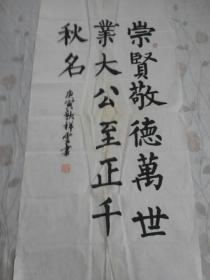 崇賢敬德萬世
業大公至正千
秋名
庚寅 祥雲書